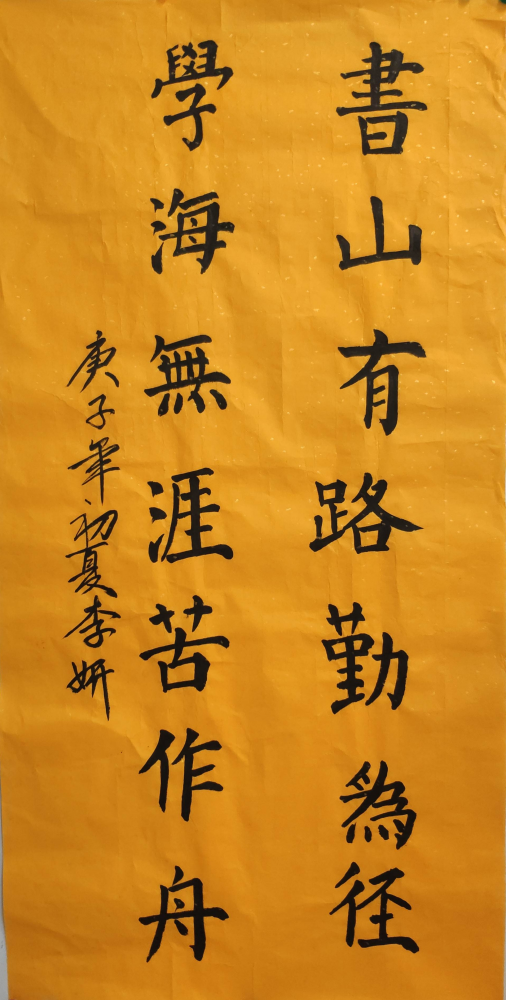 書山有路勤為径
學海無涯苦作舟
庚子年初夏李妍